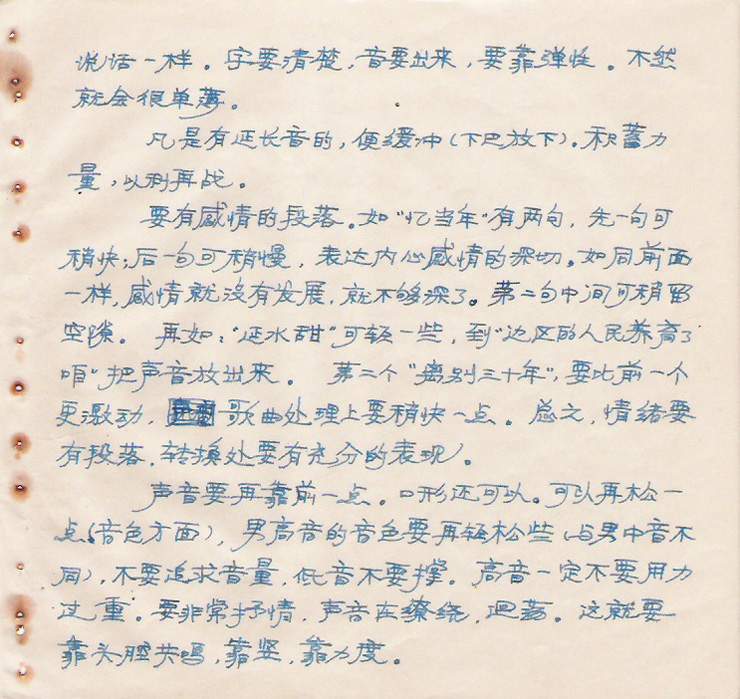 说话一样。字要清楚，音要出来，要靠弹性。不然
就会很单薄。
凡是有延长音的，便缓冲（下巴放下）。积蓄力
量，以利再战。
要有感情的段落。如“忆当年”有两句，先一句可
稍快；后一句可稍慢，表达内心感情的深切。如同前面
一样，感情就没有发展，就不够深了。第二句中间可稍留
空隙。再如：“延水甜”可轻一些，到“边区的人民养育了
咱”把声音放出来。第二个“离别三十年”，要比前一个
更激动，歌曲处理上要稍快一点。总之，情绪要
有段落，转换处要有充分的表现。
声音要再靠前一点。口形还可以。可以再松一
点（音色方面），男高音的音色要再轻松些（与男中音不
同），不要追求音量，低音不要撑。高音一定不要用力
过重。要非常抒情，声音在缭绕，迴荡。这就要
靠头腔共鸣，靠竖，靠力度。